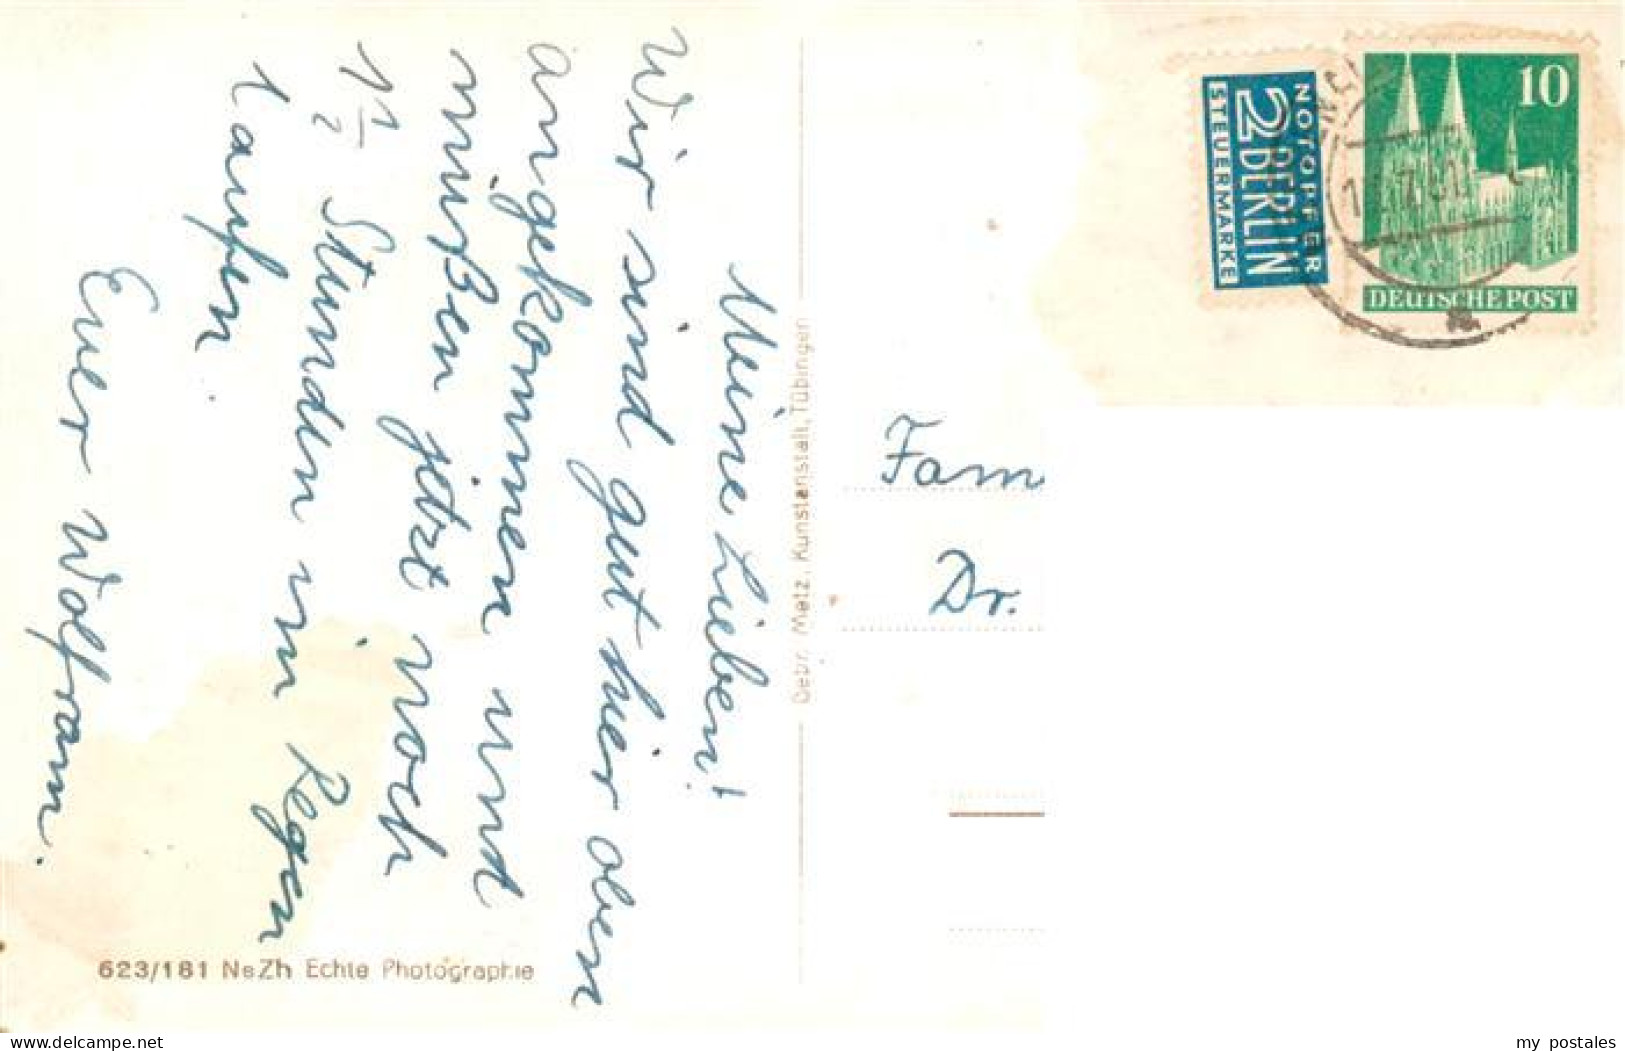 Meine Lieben!
Wir sind gut hier oben
angekommen und
müßen jetzt noch
1 1/2 Stunden im Regen
laufen.
Euer Wolfram.
623/181 NeZh Echte Photographie
Gebr. Metz, Kunstanstalt, Tübingen
NOTOPFER
2 BERLIN
STEUERMARKE
10
DEUTSCHE POST
Fam
Dr.
www.delcampe.net
my_postales